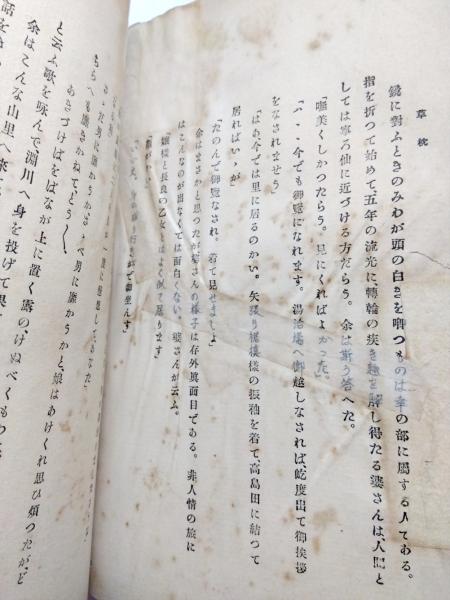 草枕
鏡に對ふときのみわが頭の白きを喞つものは幸の部に屬する人である。
指を折つて始めて五年の流光に轉輪の疾き趣を解し得たる婆さんは、人間と
しては寧ろ仙に近づける方だらう。余は斯う答へた。
「嘸美くしかつたらう。見にくればよかつた」
「ハヽヽ今でも御覽になれます。湯治場へ御越しなされば、屹度出て御挨拶
をなされませう」
「はあ、今では里に居るのかい。矢張り裾模樣の振袖を着て、高島田に結つて
居ればいゝが」
「たのんで御覽なされ。着て見せましよ」
余はまさかと思つたが、婆さんの樣子は存外眞面目である。非人情の旅に
はこんなのが出なくては面白くない。婆さんが云ふ。
「孃樣と長良の乙女とはよく似て居ります」
「顏がかい」
「いゝえ。身の成り行きがで御座んす」
あきづけばをばなが上に置く露の、けぬべくもわ
と云ふ歌を咏んで、淵川へ身を投げて果
余はこんな山里へ來